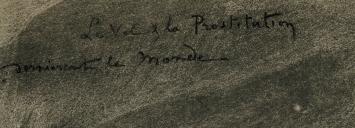 Le Vol & la Prostitution
dominent le Monde.